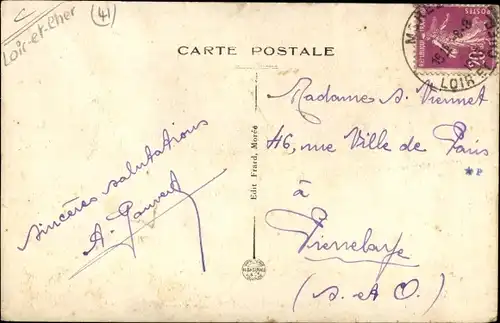 Loir-et-Cher
41
CARTE POSTALE
POSTES
20c
LOIR-ET-CHER
Madame A. Viennet
46, rue Ville de Paris
à
Pierrelaye
(S. et O.)
* P
Edit Frard, Morée
Sincères salutations